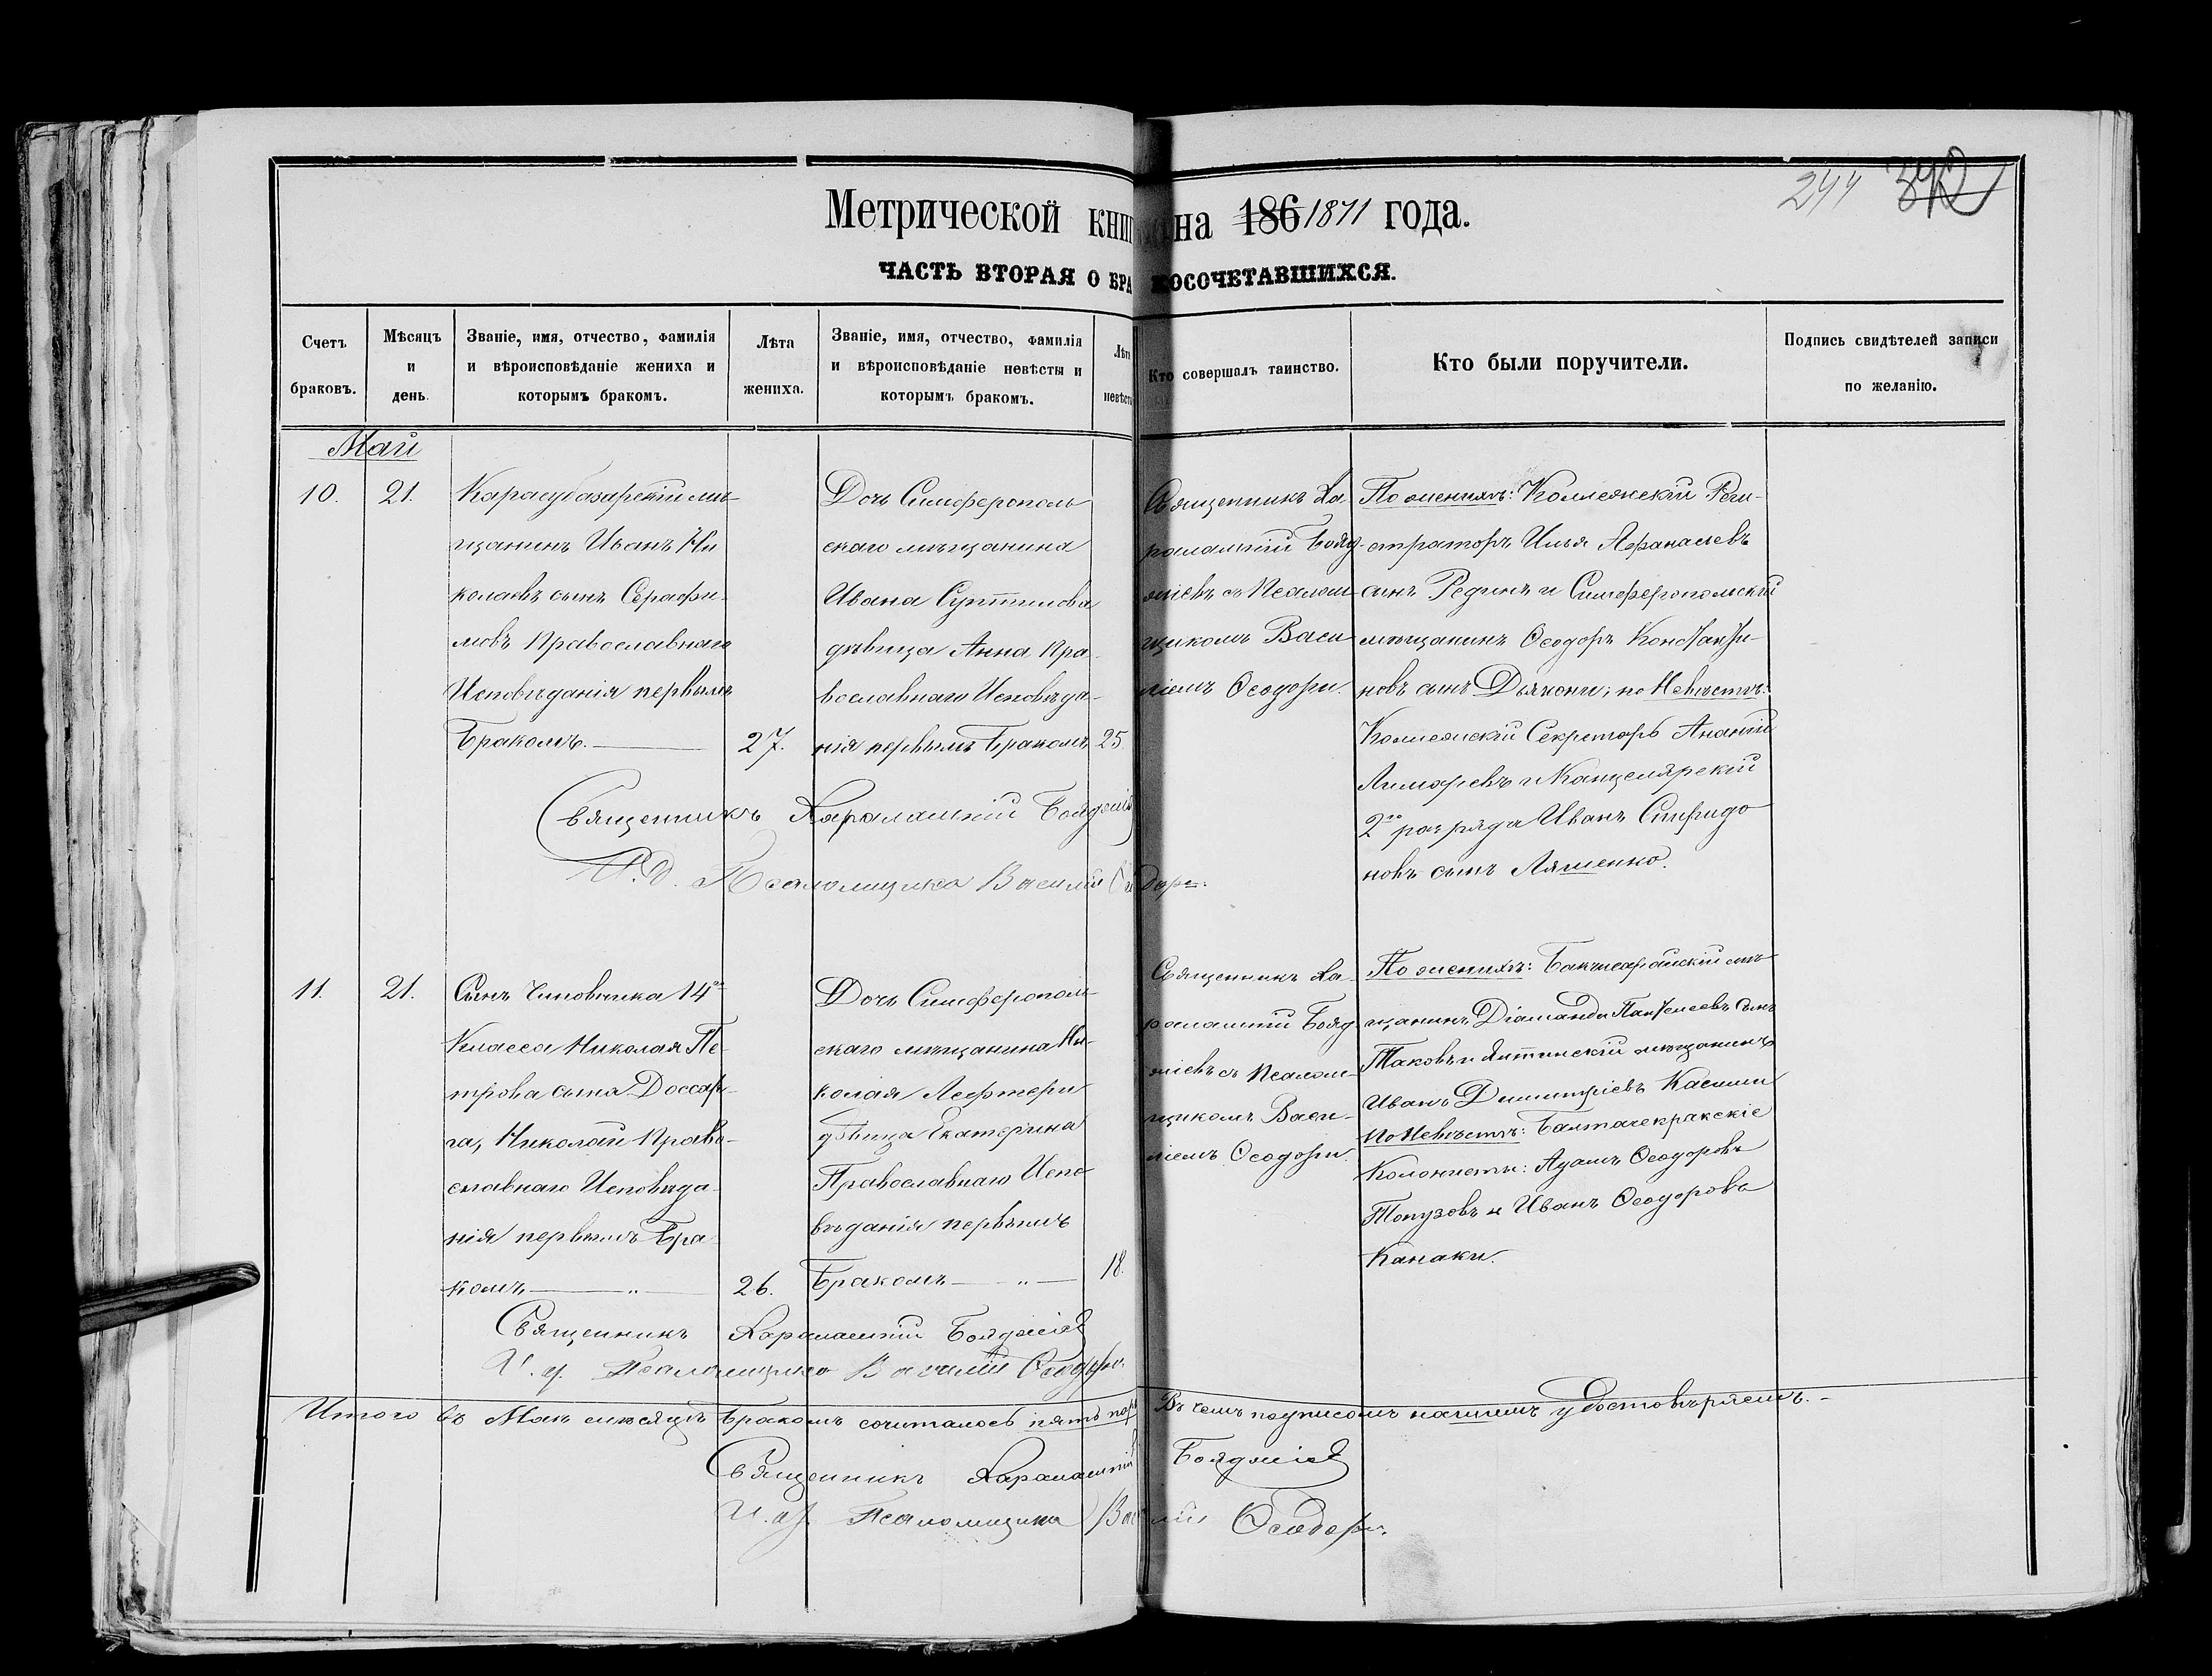 244 342
Метрической книги на 186 1871 года.
ЧАСТЬ ВТОРАЯ О БРАКОСОЧЕТАВШИХСЯ.
Счетъ браковъ.
Мѣсяцъ и день.
Званіе, имя, отчество, фамилія
и вѣроисповѣданіе жениха и
которымъ бракомъ.
Лѣта жениха.
Званіе, имя, отчество, фамилія
и вѣроисповѣданіе невѣсты и
которымъ бракомъ.
Лѣта невѣсты
Кто совершалъ таинство.
Кто были поручители.
Подпись свидѣтелей записи
по желанію.
Май
10.
21.
Карасубазарскій мѣ-
щанинъ Иванъ Ни
колаевъ сынъ Серафи-
мовъ Православнаго
Исповѣданія первымъ
Бракомъ.
27.
Дочь Симферополь
скаго мѣщанина
Ивана
дѣвица Анна Пра-
вославнаго Исповѣда-
нія первымъ Бракомъ
25
Священникъ Ха-
ралампій Бояд-
жіевъ съ Псалом-
щикомъ Васи
ліемъ Ѳеодори.
По женихѣ: Коллежскій Реги-
страторъ Илья Афанасіевъ
сынъ Рединъ и Симферопольскій
мѣщанинъ Ѳеодоръ Константи-
новъ сынъ Дьякони; по Невѣстѣ:
Коллежскій Секретарь Ананій
и Канцелярскій
2го разряда Иванъ Спиридо
новъ сынъ Ляшенко.
Священникъ Харалампій Бояджіевъ
И.д. Псаломщика Василій Ѳеодори.
11.
21.
Сынъ Чиновника 14го
Класса Николая Пе-
трова сына Доссар-
га, Николай Право-
славнаго Исповѣда-
нія первымъ Бра
комъ
26.
Дочь Симферополь-
скаго мѣщанина Ни-
колая Лефтери
дѣвица Екатерина
Православнаго Испо
вѣданія первымъ
Бракомъ
18.
Священникъ Ха-
ралампій Бояд-
жіевъ съ Псалом-
щикомъ Васи-
ліемъ Ѳеодори.
По женихѣ: Бахчисарайскій мѣ-
щанинъ Діаманди Пантелеевъ Сынъ
и Ялтинскій мѣщанинъ
Иванъ Димитріевъ
По Невѣстѣ: Балтачекракскіе
Колонисты: Адамъ Ѳеодоровъ
Топузовъ и Иванъ Ѳеодорова
Канаки.
Священникъ Харалампій Бояджіевъ
И.д. Псаломщика Василій Ѳеодори.
Итого въ Маѣ мѣсяцѣ Бракомъ сочиталось пять паръ Въ чемъ подписомъ нашимъ удостовѣряемъ.
Священникъ Харалампій Бояджіевъ
И.д. Псаломщика Василій Ѳеодори.